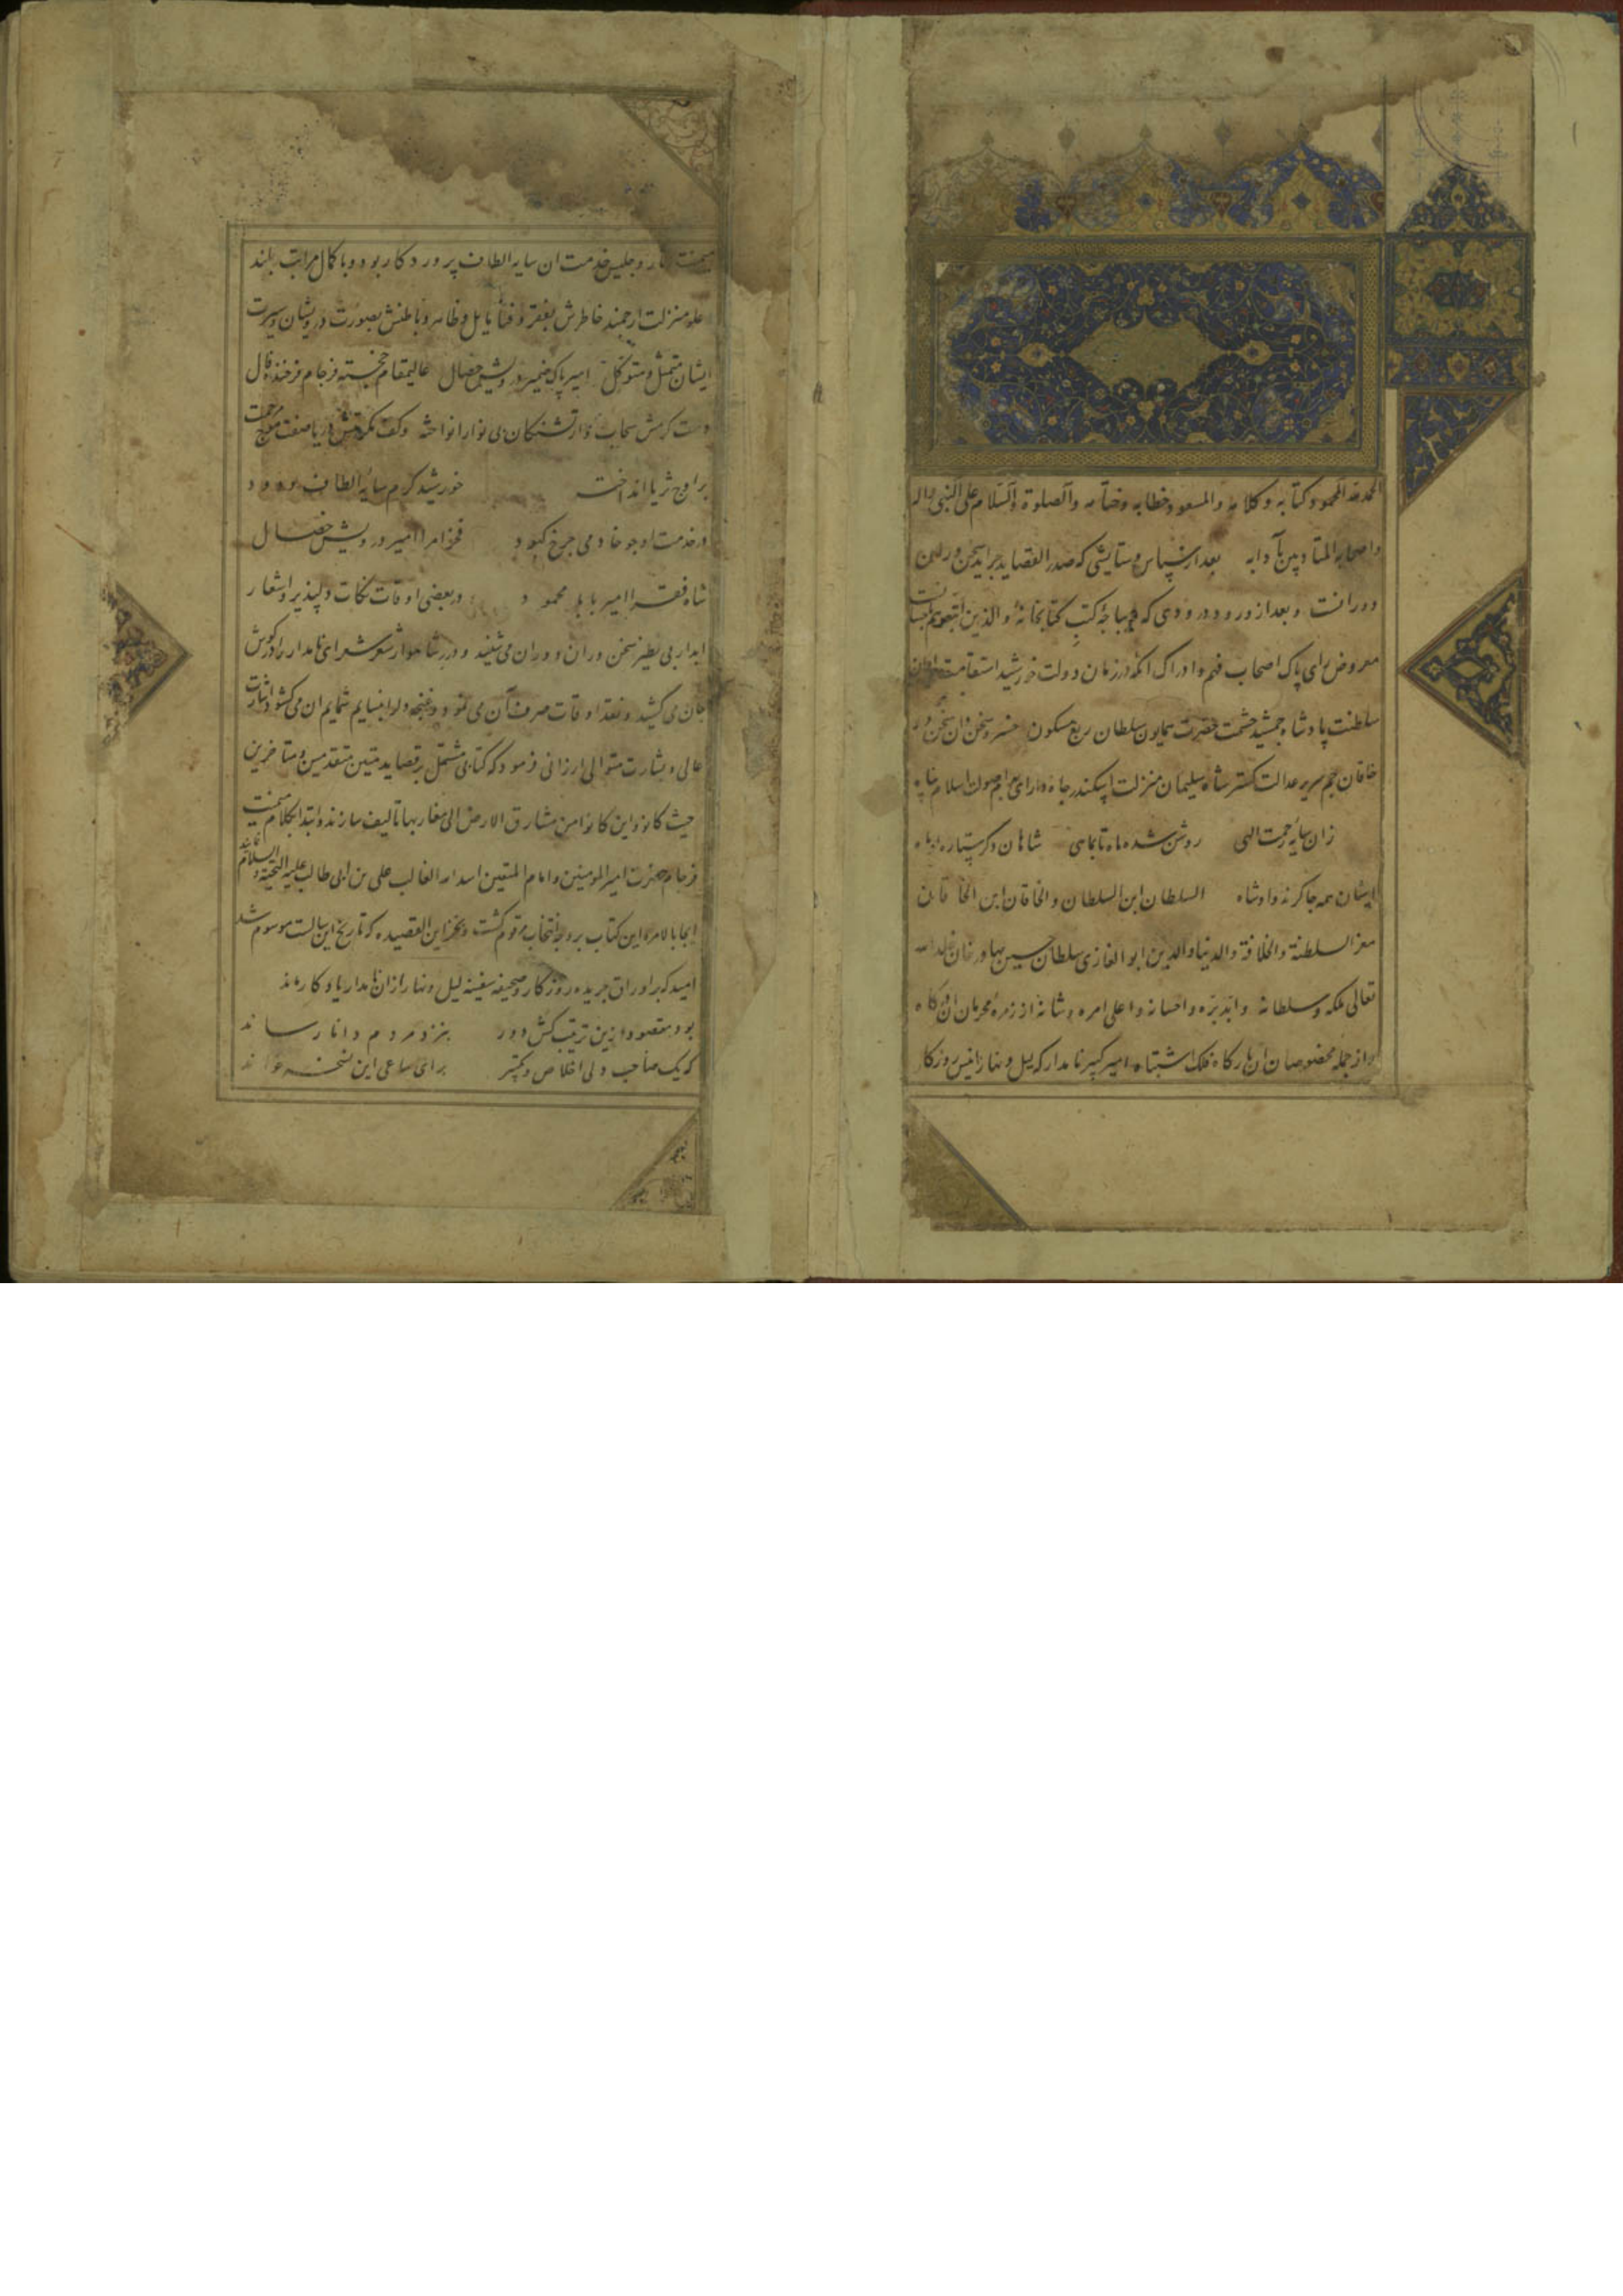 الحمد لله المحمود کتابه و کلامه والمسعود خطابه وختامه والصلوة والسلام علی النبی واله
واصحابه المتادبین بآدابه بعد از سپاس و ستایشی که صدر القصاید جراید سخن وران
دورانست و بعد از ورود درودی که دیباجه کتب کتابخانه والذین اتبعوهم باحسانست
معروض رای پاک اصحاب فهم و ادراک انکه در زمان دولت خورشید استقامت
سلطنت پادشاه جمشید حشمت حضرت همایون سلطان ربع مسکون خسرو سخن دان سخن ور
خاقان جم سریر عدالت کستر شاه سلیمان منزلت اسکندر جاه دارای اسلام پناه
زان سایه رحمت الهی روشن شده ماه تا بماهی شاهان دکر ستاره او ماه
ایشان همه چاکرند و او شاه السلطان ابن السلطان والخاقان ابن الخاقان
معز السلطنة والخلافة والدنیا والدین ابو الغازی سلطان حسین بهادر خان خلد الله
تعالی ملکه وسلطانه وابد بره واحسانه واعلی امره وشانه از زمره محرمان ان درکاه
واز جمله مخصوصان ان بارکاه فلک اشتباه امیر کبیر نامدار که لیل و نهار انیس روزکار
میمنت اثار و جلیس خدمت ان سایه الطاف پروردکار بود و با کمال مراتب بلند
علو منزلت ارجمند خاطرش بفقر و فنا مایل و ظاهر و باطنش بصورت درویشان و سیرت
ایشان متمثل و متوکل امیر پاک ضمیر درویش خصال عالیمقام خجسته فرجام فرخنده فال
دست کرمش سحاب وار تشنکان بی نوا را نواخته وکف مکرمتش دریا صفت موج رحمت
بر اوج ثریا انداخته خورشید کرم سایه الطاف ودود
در خدمت او چو خادمی چرخ کبود فخر امرا امیر درویش خصال
شاه فقرا امیر بابا محمود در بعضی اوقات نکات دلپذیر و اشعار
ابدار بی نظیر سخن وران دوران می شنید و درر شاهوار شعر شعرای نامدار را در کوش
جان می کشید و نقد اوقات صرف آن می نمود و غنچه دل را بنسایم شمایم ان می کشود اشارت
عالی و بشارت متوالی ارزانی فرمود که کتابی مشتمل بر قصاید متین متقدمین و متاخرین
حیث کانوا و این کانوا من مشارق الارض الی مغاربها تالیف سازند و ابتدا بکلام میمنت
فرجام حضرت امیر المومنین و امام المتقین اسد الله الغالب علی بن ابی طالب علیه التحیة والسلام نمایند
ایجابا لامره این کتاب بر وجه انتخاب مرقوم کشت و بمخزاین القصیده که تاریخ این رسالست موسوم شد
امید که بر اوراق جریده روزکار و صحیفه سفینه لیل و نهار ازان نامدار یادکار ماند
بود مقصود ازین ترتیب کش دور بنزد مردم دانا رساند
که یک صاحب دلی اخلاص برای ساعی این نسخه خواند